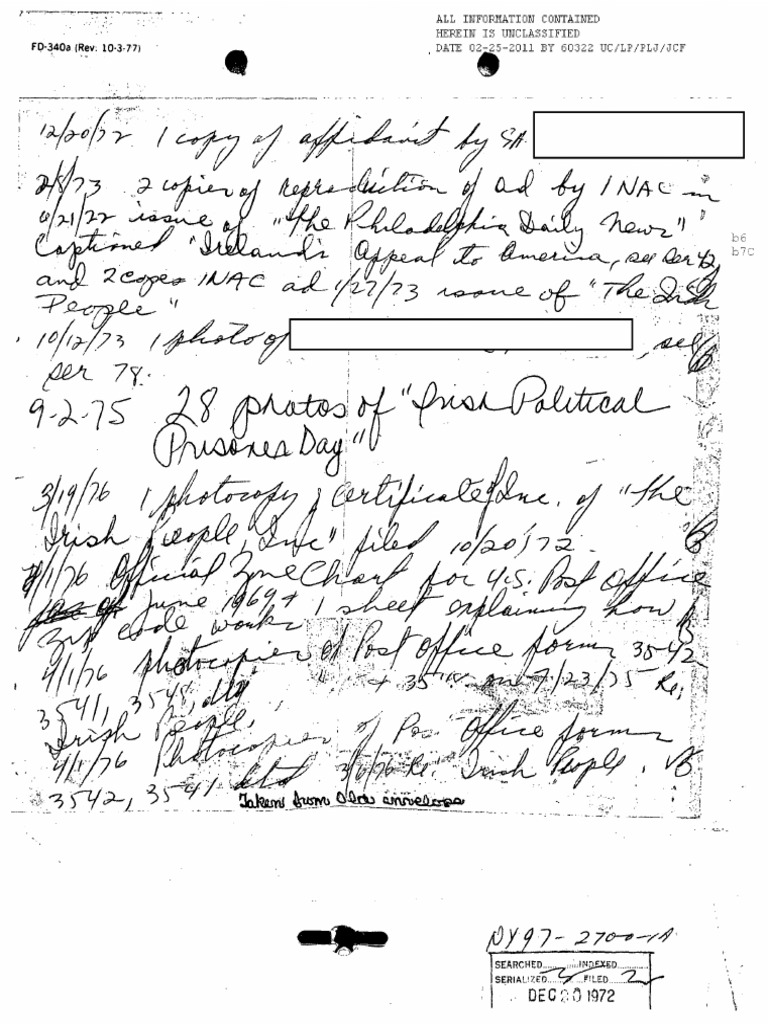 ALL INFORMATION CONTAINED
HEREIN IS UNCLASSIFIED
DATE 02-25-2011 BY 60322 UC/LP/PLJ/JCF
FD-340a (Rev. 10-3-77)
12/20/72 1 copy of affidavit by SA
2/8/73 2 copies of reproduction of ad by INAC in
issue of "The Philadelphia Daily News"
Captioned "Ireland's Appeal to America, see ser 42
b6
b7C
and 2 copes INAC ad 1/27/73 issue of "The Irish
People"
10/12/73 1 photo of , see
ser 78.
9-2-75 28 photos of "Irish Political
Prisoner Day"
3/19/76 1 photocopy of Certificate of Inc. of "The
Irish People, Inc" filed 10/20/72.
4/1/76 Official Zone Chart for U.S. Post Office
June 1969 + 1 sheet explaining how
zip code works
4/1/76 photocopies of Post Office forms 3542
3541, 3548, dtd + on 7/23/75 Re:
Irish People.
4/1/76 Photocopies of Pos. Office forms
3542, 3541 dtd 3/6/76 Re: Irish People.
Taken from Old envelope
NY 97-2700-1A
SEARCHED INDEXED
SERIALIZED FILED
DEC 20 1972